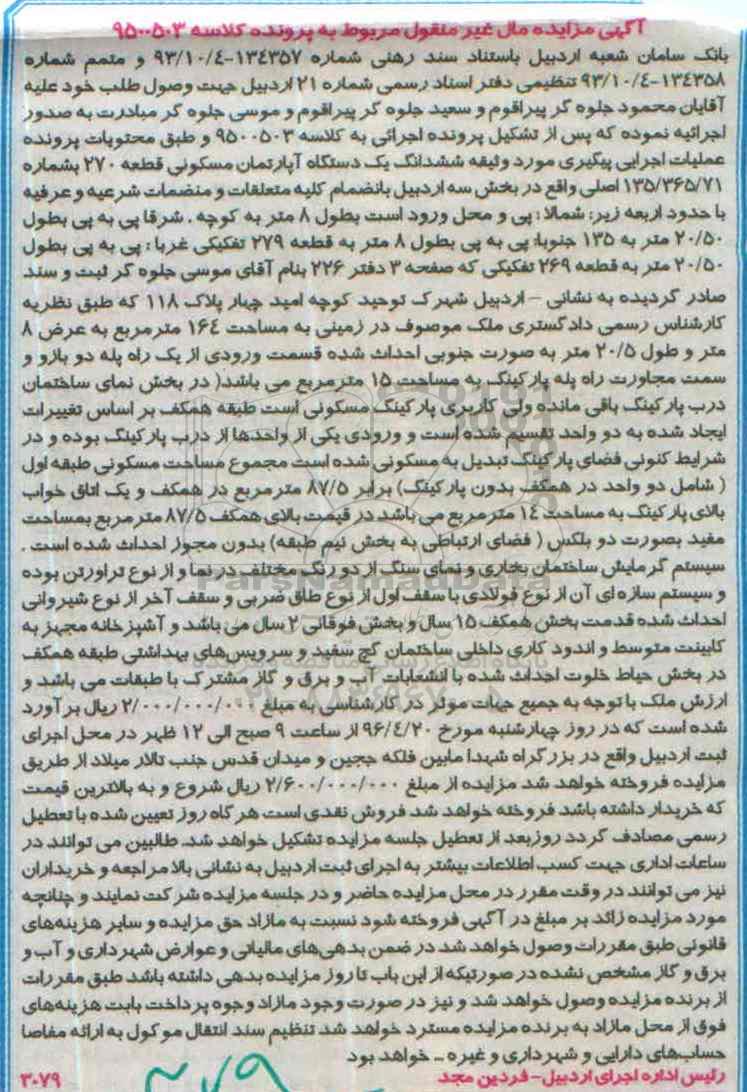 آگهی مزایده مال غیر منقول مربوط به پرونده کلاسه ۹۵۰۰۵۰۳
بانک سامان شعبه اردبیل باستناد سند رهنی شماره ۱۳۴۳۵۷-۹۳/۱۰/۴ و متمم شماره
۱۳۴۳۵۸-۹۳/۱۰/۴ تنظیمی دفتر اسناد رسمی شماره ۲۱ اردبیل جهت وصول طلب خود علیه
آقایان محمود جلوه گر پیراقوم و سعید جلوه گر پیراقوم و موسی جلوه گر مبادرت به صدور
اجرائیه نموده که پس از تشکیل پرونده اجرائی به کلاسه ۹۵۰۰۵۰۳ و طبق محتویات پرونده
عملیات اجرایی پیگیری مورد وثیقه ششدانگ یک دستگاه آپارتمان مسکونی قطعه ۲۷۰ بشماره
۱۳۵/۳۶۵/۷۱ اصلی واقع در بخش سه اردبیل بانضمام کلیه متعلقات و منضمات شرعیه و عرفیه
با حدود اربعه زیر: شمالا : پی و محل ورود است بطول ۸ متر به کوچه . شرقا پی به پی بطول
۲۰/۵۰ متر به ۱۳۵ جنوبا: پی به پی بطول ۸ متر به قطعه ۲۷۹ تفکیکی غربا : پی به پی بطول
۲۰/۵۰ متر به قطعه ۲۶۹ تفکیکی که صفحه ۳ دفتر ۲۲۶ بنام آقای موسی جلوه گر ثبت و سند
صادر گردیده به نشانی – اردبیل شهرک توحید کوچه امید چهار پلاک ۱۱۸ که طبق نظریه
کارشناس رسمی دادگستری ملک موصوف در زمینی به مساحت ۱۶۴ مترمربع به عرض ۸
متر و طول ۲۰/۵ متر به صورت جنوبی احداث شده قسمت ورودی از یک راه پله دو بازو و
سمت مجاورت راه پله پارکینگ به مساحت ۱۵ مترمربع می باشد( در بخش نمای ساختمان
درب پارکینگ باقی مانده ولی کاربری پارکینگ مسکونی است طبقه همکف بر اساس تغییرات
ایجاد شده به دو واحد تقسیم شده است و ورودی یکی از واحدها از درب پارکینگ بوده و در
شرایط کنونی فضای پارکینگ تبدیل به مسکونی شده است مجموع مساحت مسکونی طبقه اول
( شامل دو واحد در همکف بدون پارکینگ) برابر ۸۷/۵ مترمربع در همکف و یک اتاق خواب
بالای پارکینگ به مساحت ۱۴ مترمربع می باشد در قیمت بالای همکف ۸۷/۵ مترمربع بمساحت
مفید بصورت دو بلکس ( فضای ارتباطی به بخش نیم طبقه) بدون مجوز احداث شده است .
سیستم گرمایش ساختمان بخاری و نمای سنگ از دو رنگ مختلف در نما و از نوع تراورتن بوده
و سیستم سازه ای آن از نوع فولادی با سقف اول از نوع طاق ضربی و سقف آخر از نوع شیروانی
احداث شده قدمت بخش همکف ۱۵ سال و بخش فوقانی ۲ سال می باشد و آشپزخانه مجهز به
کابینت متوسط و اندود کاری داخلی ساختمان گچ سفید و سرویس های بهداشتی طبقه همکف
در بخش حیاط خلوت احداث شده با انشعابات آب و برق و گاز مشترک با طبقات می باشد و
ارزش ملک با توجه به جمیع جهات موثر در کارشناسی به مبلغ ۲/۰۰۰/۰۰۰/۰۰۰ ریال برآورد
شده است که در روز چهارشنبه مورخ ۹۶/۴/۲۰ از ساعت ۹ صبح الی ۱۲ ظهر در محل اجرای
ثبت اردبیل واقع در بزرگراه شهدا مابین فلکه ججین و میدان قدس جنب تالار میلاد از طریق
مزایده فروخته خواهد شد مزایده از مبلغ ۲/۶۰۰/۰۰۰/۰۰۰ ریال شروع و به بالاترین قیمت
که خریدار داشته باشد فروخته خواهد شد فروش نقدی است هر گاه روز تعیین شده با تعطیل
رسمی مصادف گردد روزبعد از تعطیل جلسه مزایده تشکیل خواهد شد. طالبین می توانند در
ساعات اداری جهت کسب اطلاعات بیشتر به اجرای ثبت اردبیل به نشانی بالا مراجعه و خریداران
نیز می توانند در وقت مقرر در محل مزایده حاضر و در جلسه مزایده شرکت نمایند و چنانچه
مورد مزایده زائد بر مبلغ در آگهی فروخته شود نسبت به مازاد حق مزایده و سایر هزینه‌های
قانونی طبق مقررات وصول خواهد شد در ضمن بدهی های مالیاتی و عوارض شهرداری و آب و
برق و گاز مشخص نشده در صورتیکه از این باب تا روز مزایده بدهی داشته باشد طبق مقررات
از برنده مزایده وصول خواهد شد و نیز در صورت وجود مازاد وجوه پرداخت بابت هزینه‌های
فوق از محل مازاد به برنده مزایده مسترد خواهد شد تنظیم سند انتقال موکول به ارائه مفاصا
حساب‌های دارایی و شهرداری و غیره – خواهد بود
رئیس اداره اجرای اردبیل- فردین مجد
۳۰۷۹
ParsNamadData